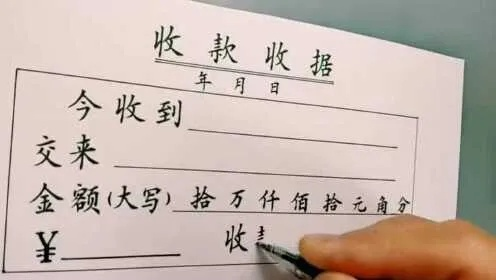 收款收据
年月日
今收到
交来
金额(大写) 拾万仟佰拾元角分
¥ 收